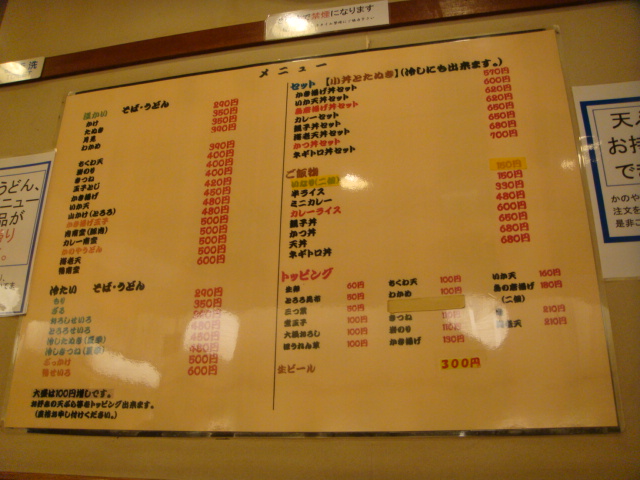 禁煙になります
メニュー
そば・うどん
かけ 290円
たぬき 350円
月見 350円
わかめ 390円
390円
ちくわ天 400円
400円
きつね 400円
玉子とじ 420円
かき揚げ 450円
いか天 480円
山かけ(とろろ) 500円
かき揚げ玉子 500円
カレー南蛮 500円
かのやうどん 500円
海老天 500円
鴨南蛮 600円
冷たい そば・うどん
もり 290円
ざる 350円
おろしせいろ
とろろせいろ
冷したぬき
冷しきつね 480円
ぶっかけ 500円
鴨せいろ 600円
大盛は100円増しです。
お好みの天ぷら等のトッピング出来ます。
(直接お申し付けください。)
セット 【小丼とたぬき】(冷しにも出来ます。)
かき揚げ丼セット 570円
いか天丼セット 600円
鳥唐揚げ丼セット 620円
カレーセット 620円
親子丼セット 650円
海老天丼セット 650円
かつ丼セット 680円
ネギトロ丼セット 700円
ご飯物
いなり(二個) 150円
半ライス 150円
ミニカレー 330円
カレーライス 480円
親子丼 600円
かつ丼 650円
天丼 680円
ネギトロ丼 680円
トッピング
生卵 60円
とろろ昆布 50円
90円
温玉子 90円
大根おろし 90円
ほうれん草 90円
ちくわ天 100円
わかめ 100円
きつね 110円
岩のり 110円
かき揚げ 130円
いか天 160円
鳥の唐揚げ 180円
(二個)
210円
海老天 210円
生ビール 300円
うどん、
ニュー
品が
天ぷ
お持
でき
かのや
注文を
是非ご